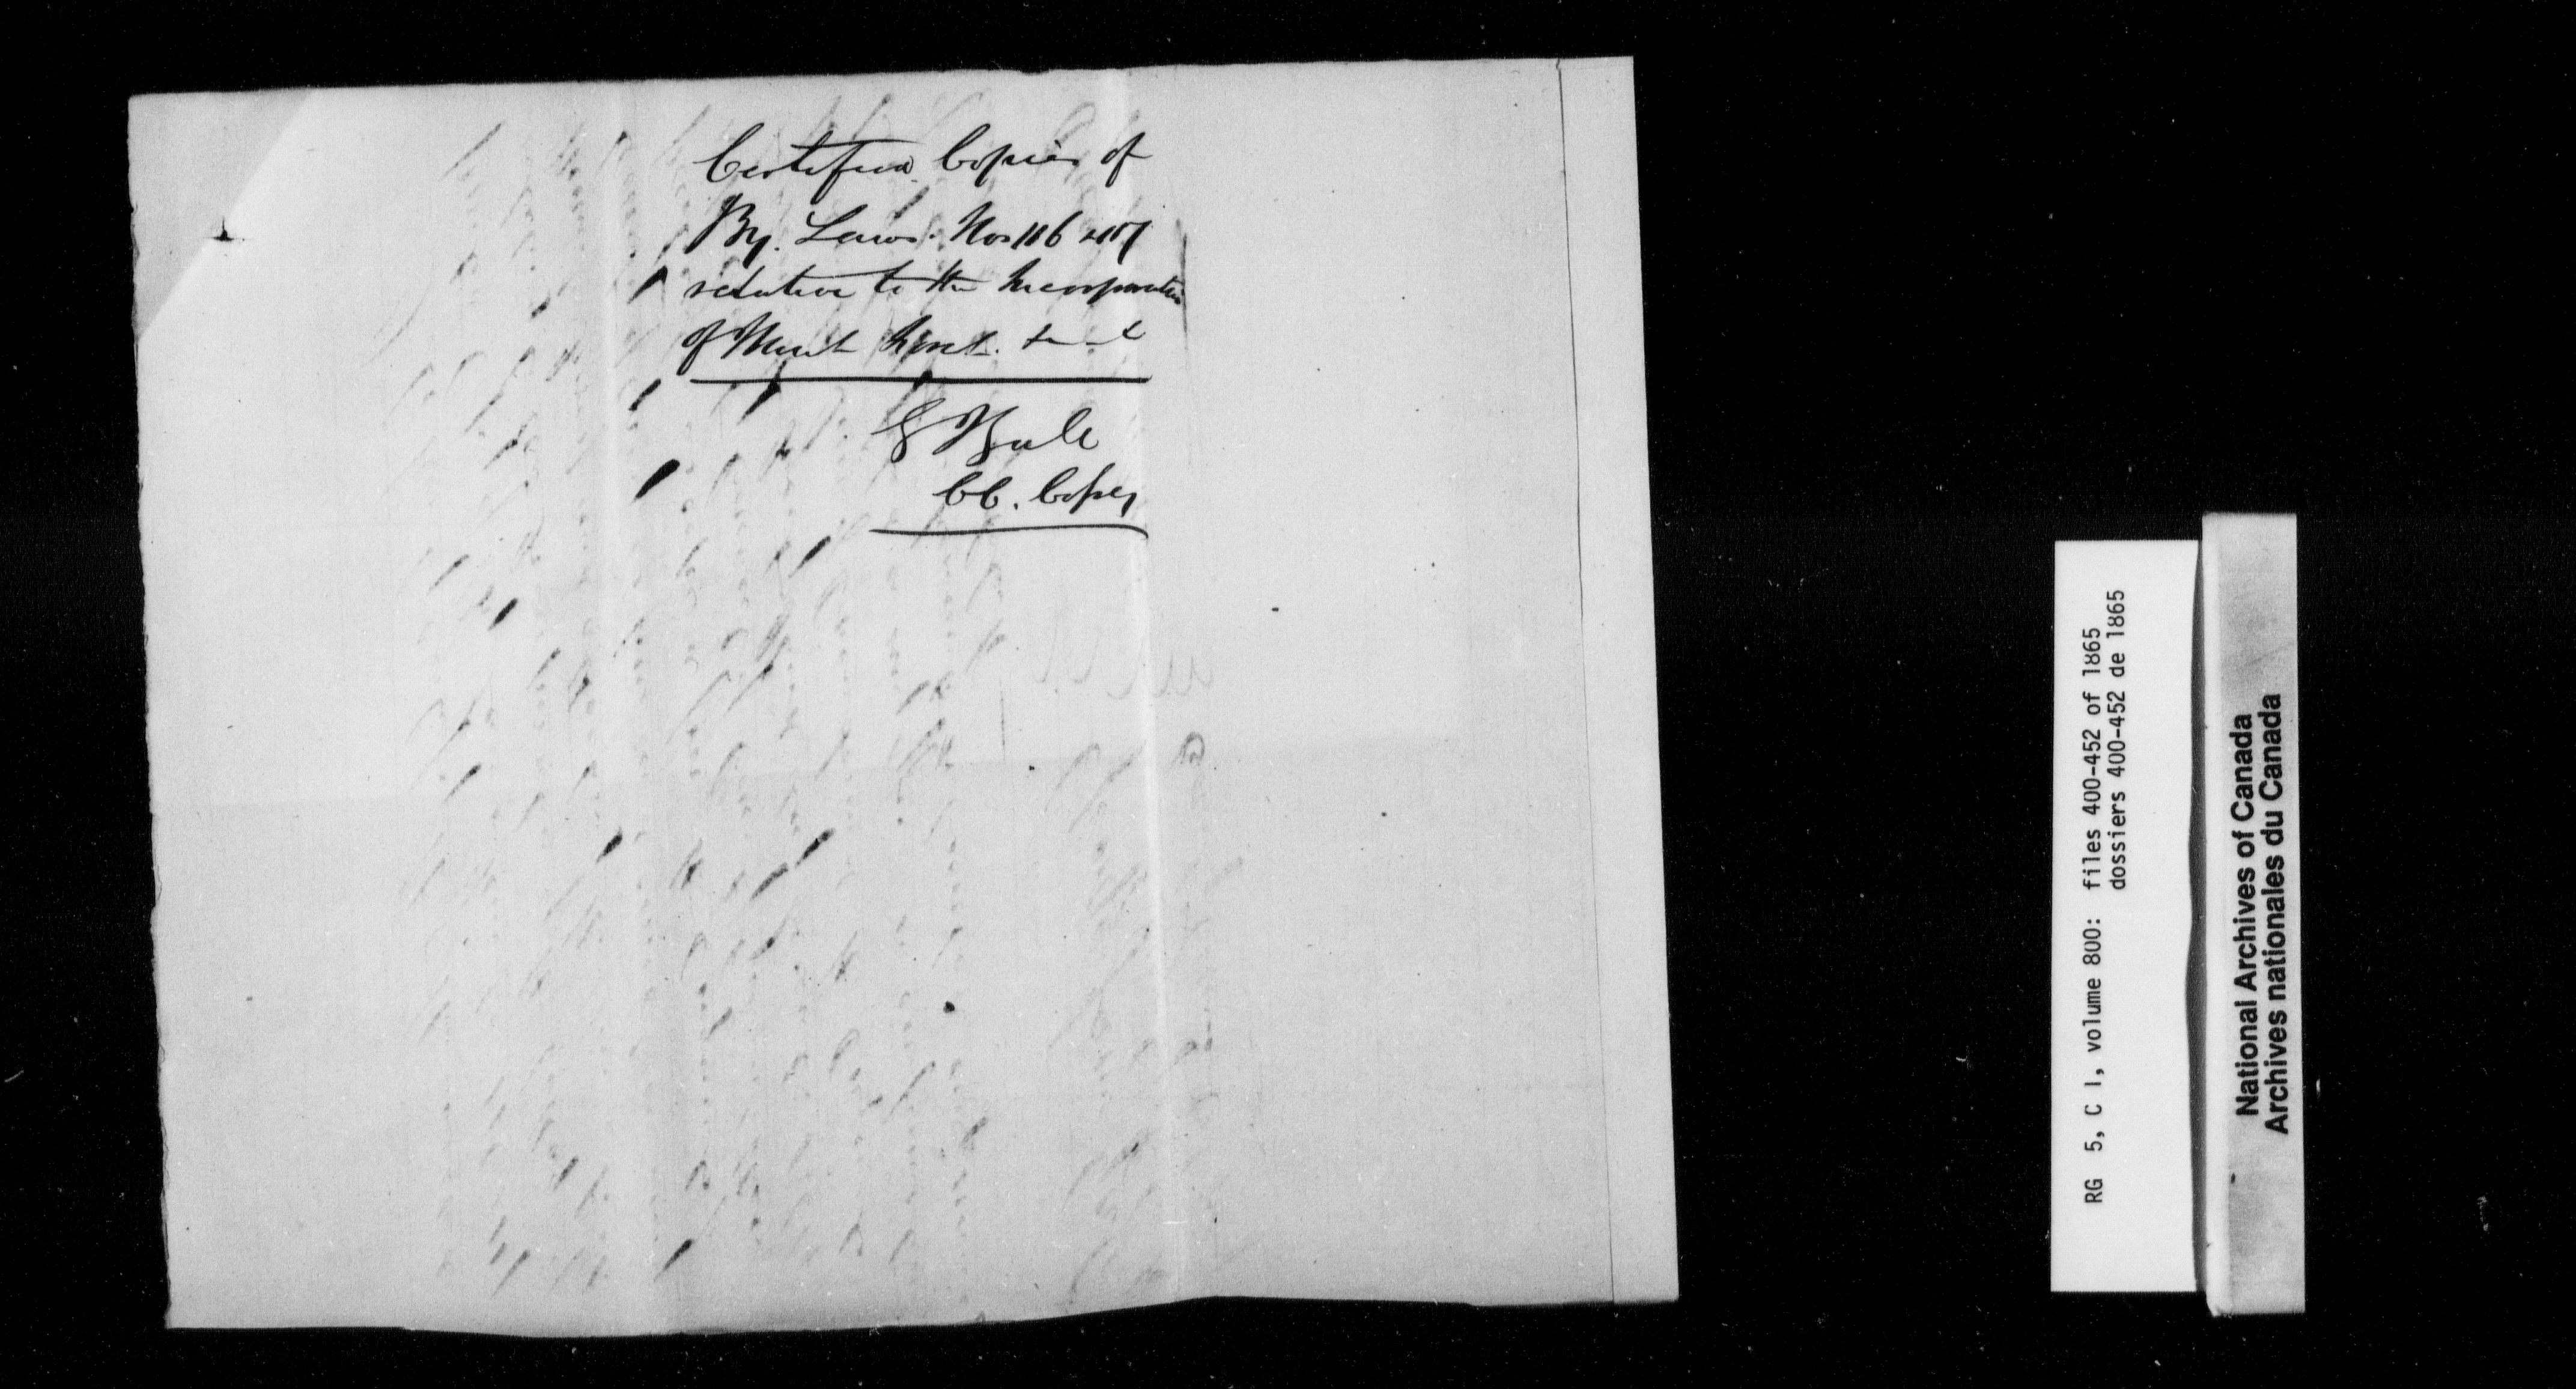 Certified Copies of
By. Laws. Nos 106 & 107
relative to the Incorporation
of Mount Forest. &c &c
G Yule
CC. Copy
RG 5, C 1, volume 800: files 400-452 of 1865
dossiers 400-452 de 1865
National Archives of Canada
Archives nationales du Canada